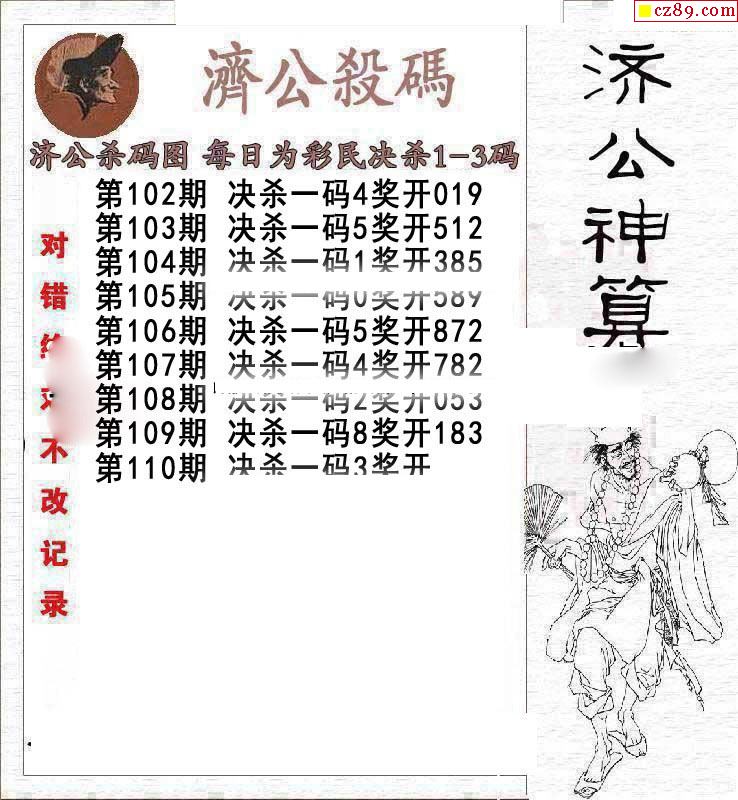 cz89.com
濟公殺碼
济公杀码图 每日为彩民决杀1-3码
第102期 决杀一码4奖开019
第103期 决杀一码5奖开512
第104期 决杀一码1奖开385
第105期 决杀一码0奖开589
第106期 决杀一码5奖开872
第107期 决杀一码4奖开782
第108期 决杀一码2奖开053
第109期 决杀一码8奖开183
第110期 决杀一码3奖开
对错绝对不改记录
济公神算